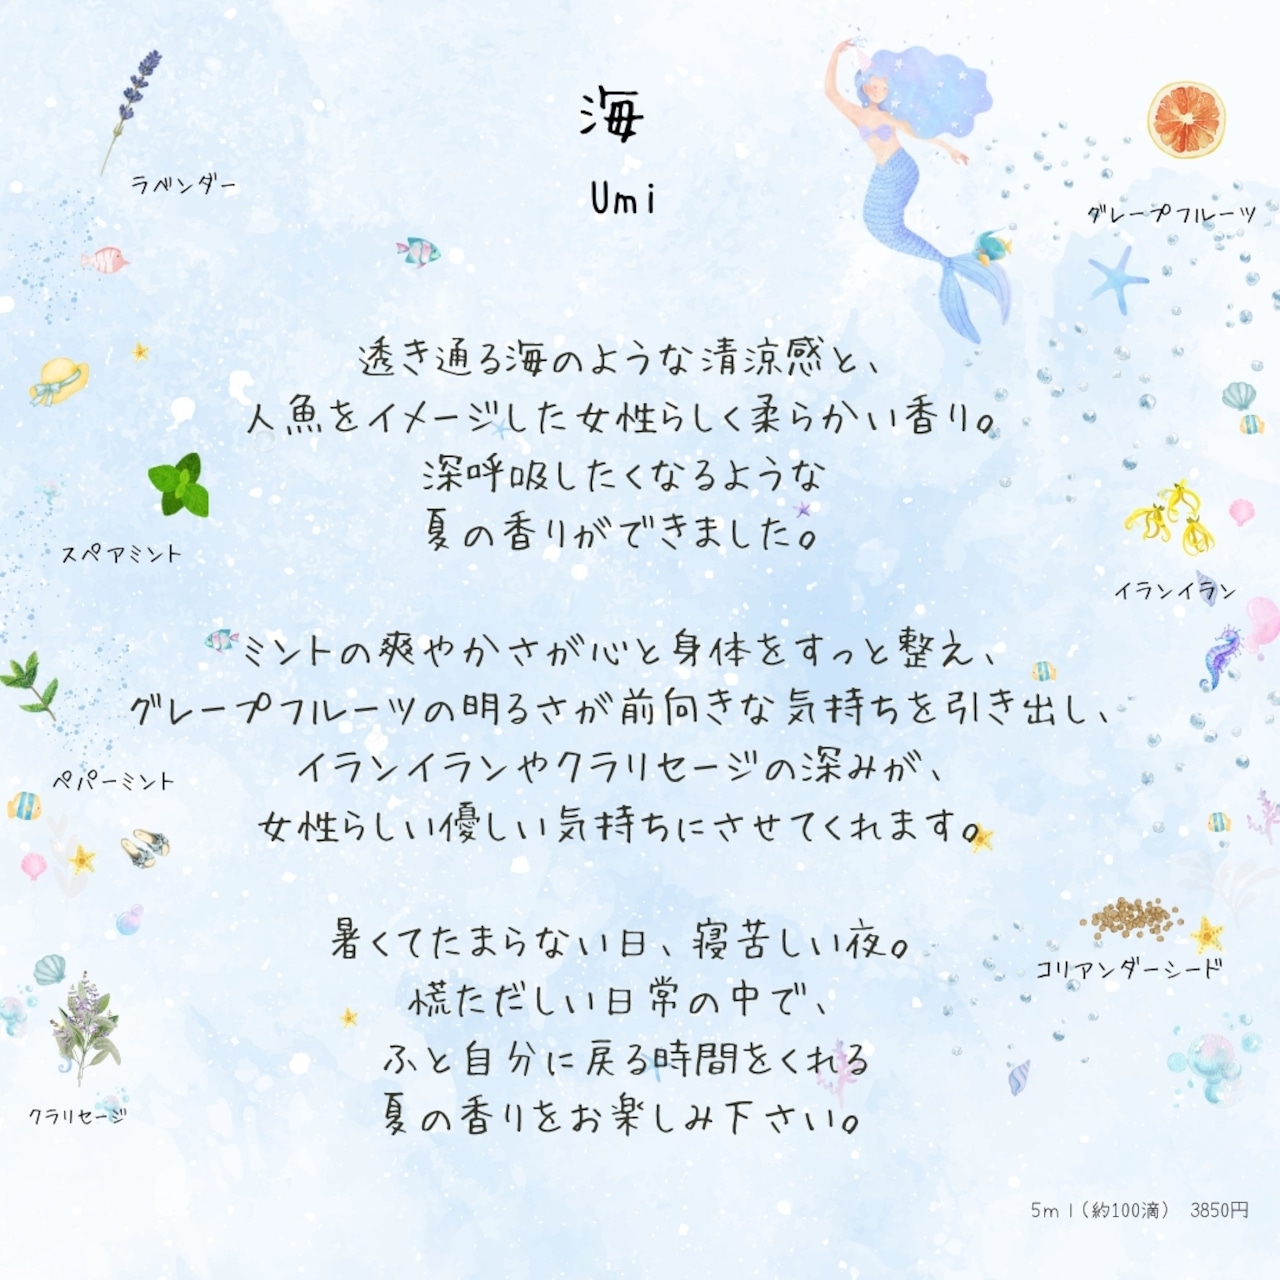 海
Umi
ラベンダー
グレープフルーツ
透き通る海のような清涼感と、
人魚をイメージした女性らしく柔らかい香り。
深呼吸したくなるような
夏の香りができました。
スペアミント
イランイラン
ミントの爽やかさが心と身体をすっと整え、
グレープフルーツの明るさが前向きな気持ちを引き出し、
イランイランやクラリセージの深みが、
女性らしい優しい気持ちにさせてくれます。
ペパーミント
暑くてたまらない日、寝苦しい夜。
慌ただしい日常の中で、
ふと自分に戻る時間をくれる
夏の香りをお楽しみ下さい。
コリアンダーシード
クラリセージ
5ml(約100滴) 3850円